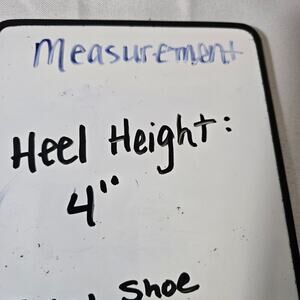 Measurement
Heel Height:
4"
Shoe